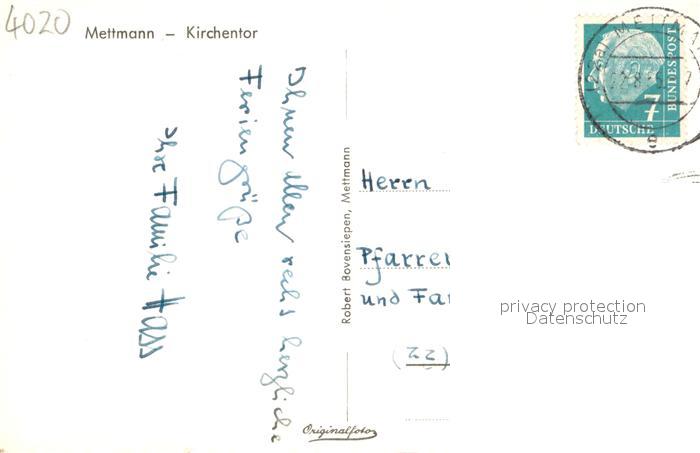 4020
Mettmann – Kirchentor
Ihnen allen recht herzliche
Feriengrüße
Ihre Familie Hass
Robert Bovensiepen, Mettmann
Originalfoto
Herrn
Pfarrer
und Fa
(22)
7
DEUTSCHE
BUNDESPOST
METTMA
privacy protection
Datenschutz